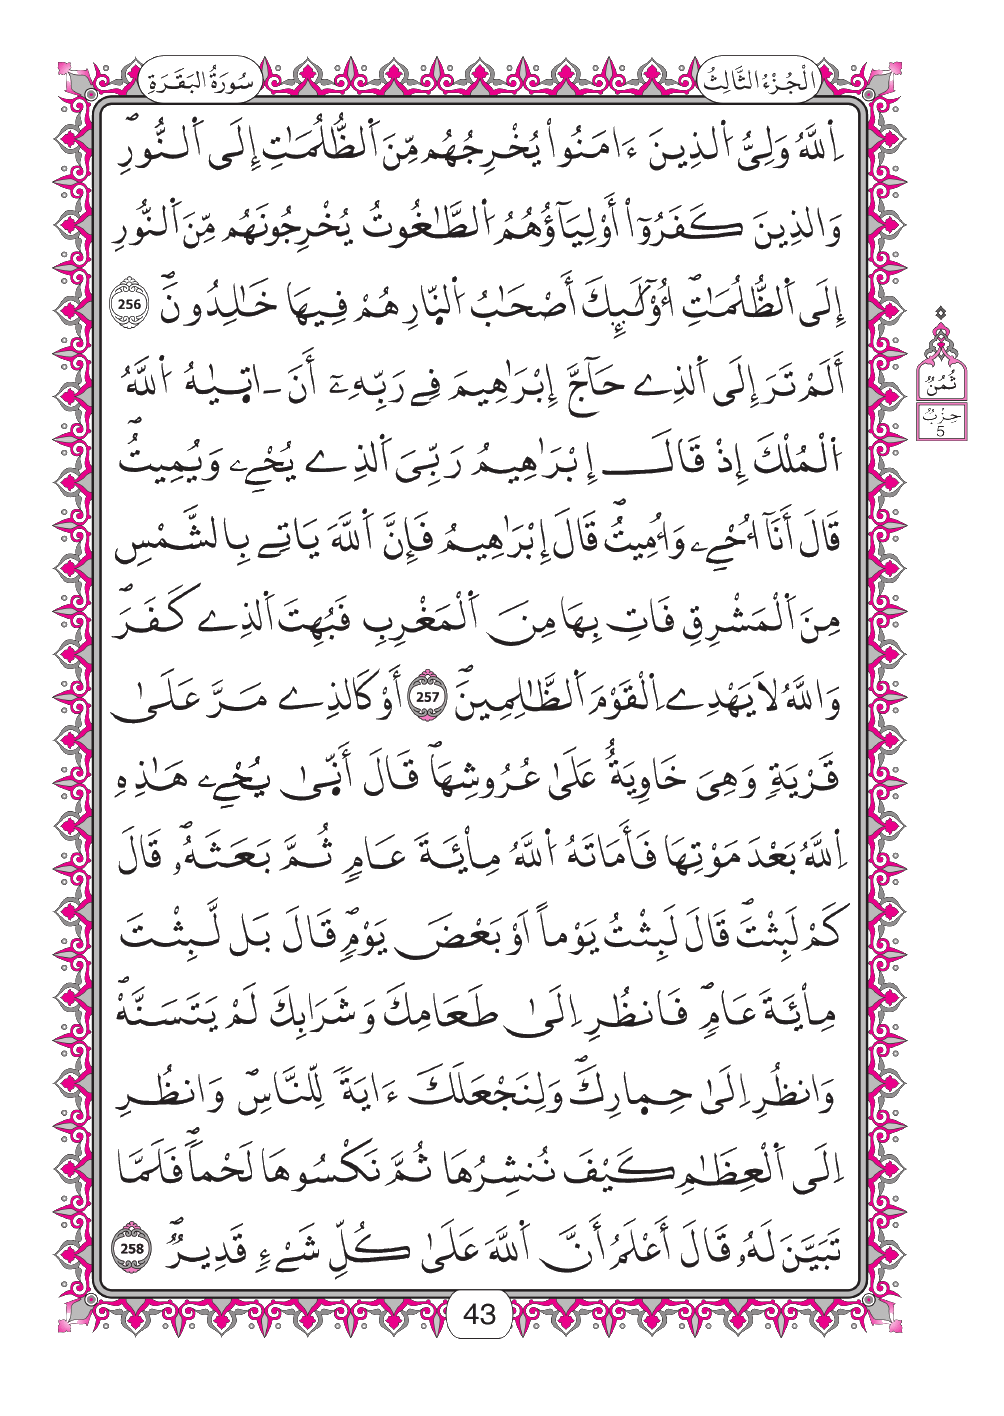 الْجُزْءُ الثَّالِثُ
سُورَةُ الْبَقَرَةِ
اِ۬للَّهُ وَلِيُّ اُ۬لذِينَ ءَامَنُواْ يُخْرِجُهُم مِّنَ اَ۬لظُّلُمَٰتِ إِلَي اَ۬لنُّورِۖ
وَالذِينَ كَفَرُوٓاْ أَوْلِيَآؤُهُمُ اُ۬لطَّٰغُوتُ يُخْرِجُونَهُم مِّنَ اَ۬لنُّورِ
إِلَي اَ۬لظُّلُمَٰتِۖ أُوْلَٰٓئِكَ أَصْحَٰبُ اُ۬لنّ۪ارِ هُمْ فِيهَا خَٰلِدُونَۖ 256
أَلَمْ تَرَ إِلَي اَ۬لذِے حَآجَّ إِبْرَٰهِيمَ فِے رَبِّهِۦٓ أَنَ اٰت۪يٰهُ اُ۬للَّهُ
ثُمُنُ
حِزْبُ
5
اُ۬لْمُلْكَ إِذْ قَالَ إِبْرَٰهِيمُ رَبِّيَ اَ۬لذِے يُحْيِۦ وَيُمِيتُۖ
قَالَ أَنَآ أُحْيِۦ وَأُمِيتُۖ قَالَ إِبْرَٰهِيمُ فَإِنَّ اَ۬للَّهَ يَاتِے بِالشَّمْسِ
مِنَ اَ۬لْمَشْرِقِ فَاتِ بِهَا مِنَ اَ۬لْمَغْرِبِ فَبُهِتَ اَ۬لذِے كَفَرَۖ
وَاللَّهُ لَا يَهْدِے اِ۬لْقَوْمَ اَ۬لظَّٰلِمِينَۖ 257 أَوْ كَالذِے مَرَّ عَلَيٰ
قَرْيَةٖ وَهِيَ خَاوِيَةٌ عَلَيٰ عُرُوشِهَاۖ قَالَ أَنّ۪يٰ يُحْيِۦ هَٰذِهِ
اِ۬للَّهُ بَعْدَ مَوْتِهَا فَأَمَاتَهُ اُ۬للَّهُ مِاْئَةَ عَامٖ ثُمَّ بَعَثَهُۥۖ قَالَ
كَمْ لَبِثْتَۖ قَالَ لَبِثْتُ يَوْماً اَوْ بَعْضَ يَوْمٖۖ قَالَ بَل لَّبِثْتَ
مِاْئَةَ عَامٖۖ فَانظُرِ اِلَيٰ طَعَامِكَ وَشَرَابِكَ لَمْ يَتَسَنَّهْۖ
وَانظُرِ اِلَيٰ حِم۪ارِكَۖ وَلِنَجْعَلَكَ ءَايَةٗ لِّلنَّاسِۖ وَانظُرِ
اِلَي اَ۬لْعِظَٰمِ كَيْفَ نُنشِرُهَا ثُمَّ نَكْسُوهَا لَحْماٗۖ فَلَمَّا
تَبَيَّنَ لَهُۥ قَالَ أَعْلَمُ أَنَّ اَ۬للَّهَ عَلَيٰ كُلِّ شَےْءٖ قَدِيرٞۖ 258
43